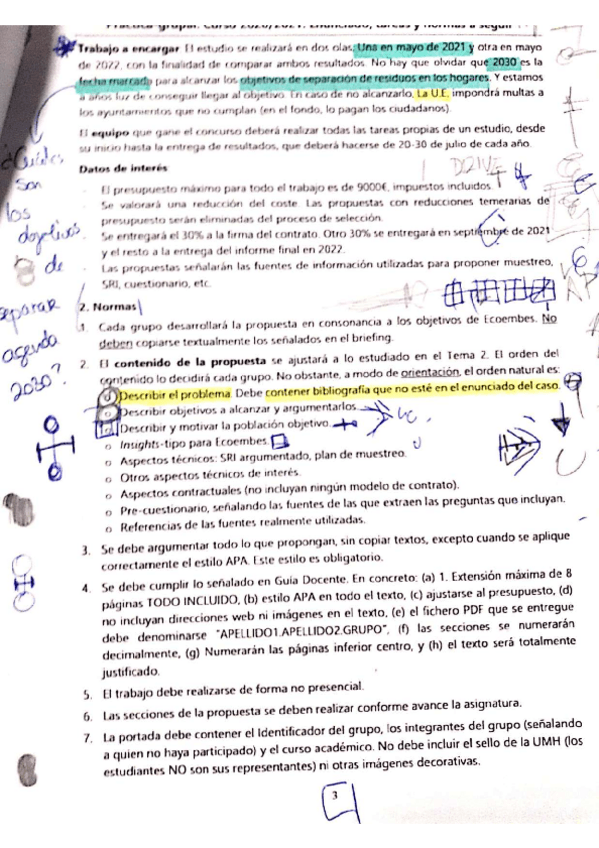 Práctica grupal. Curso 2020/2021. Enunciado, tareas y normas a seguir
Trabajo a encargar. El estudio se realizará en dos olas: Una en mayo de 2021 y otra en mayo
de 2022, con la finalidad de comparar ambos resultados. No hay que olvidar que 2030 es la
fecha marcada para alcanzar los objetivos de separación de residuos en los hogares. Y estamos
a años luz de conseguir llegar al objetivo. En caso de no alcanzarlo, La U.E. impondrá multas a
los ayuntamientos que no cumplan (en el fondo, lo pagan los ciudadanos).
El equipo que gane el concurso deberá realizar todas las tareas propias de un estudio, desde
su inicio hasta la entrega de resultados, que deberá hacerse de 20-30 de julio de cada año.
¿Cuáles
son
los
objetivos
de
separar
agenda
2030?
Datos de interés
- El presupuesto máximo para todo el trabajo es de 9000€, impuestos incluidos.
- Se valorará una reducción del coste. Las propuestas con reducciones temerarias de
presupuesto serán eliminadas del proceso de selección.
- Se entregará el 30% a la firma del contrato. Otro 30% se entregará en septiembre de 2021
y el resto a la entrega del informe final en 2022.
- Las propuestas señalarán las fuentes de información utilizadas para proponer muestreo,
SRI, cuestionario, etc.
2. Normas
1. Cada grupo desarrollará la propuesta en consonancia a los objetivos de Ecoembes. No
deben copiarse textualmente los señalados en el briefing.
2. El contenido de la propuesta se ajustará a lo estudiado en el Tema 2. El orden del
contenido lo decidirá cada grupo. No obstante, a modo de orientación, el orden natural es:
o Describir el problema. Debe contener bibliografía que no esté en el enunciado del caso.
o Describir objetivos a alcanzar y argumentarlos.
o Describir y motivar la población objetivo.
o Insights-tipo para Ecoembes.
o Aspectos técnicos: SRI argumentado, plan de muestreo.
o Otros aspectos técnicos de interés.
o Aspectos contractuales (no incluyan ningún modelo de contrato).
o Pre-cuestionario, señalando las fuentes de las que extraen las preguntas que incluyan.
o Referencias de las fuentes realmente utilizadas.
3. Se debe argumentar todo lo que propongan, sin copiar textos, excepto cuando se aplique
correctamente el estilo APA. Este estilo es obligatorio.
4. Se debe cumplir lo señalado en Guía Docente. En concreto: (a) 1. Extensión máxima de 8
páginas TODO INCLUIDO, (b) estilo APA en todo el texto, (c) ajustarse al presupuesto, (d)
no incluyan direcciones web ni imágenes en el texto, (e) el fichero PDF que se entregue
debe denominarse "APELLIDO1.APELLIDO2.GRUPO", (f) las secciones se numerarán
decimalmente, (g) Numerarán las páginas inferior centro, y (h) el texto será totalmente
justificado.
5. El trabajo debe realizarse de forma no presencial.
6. Las secciones de la propuesta se deben realizar conforme avance la asignatura.
7. La portada debe contener el Identificador del grupo, los integrantes del grupo (señalando
a quien no haya participado) y el curso académico. No debe incluir el sello de la UMH (los
estudiantes NO son sus representantes) ni otras imágenes decorativas.
3